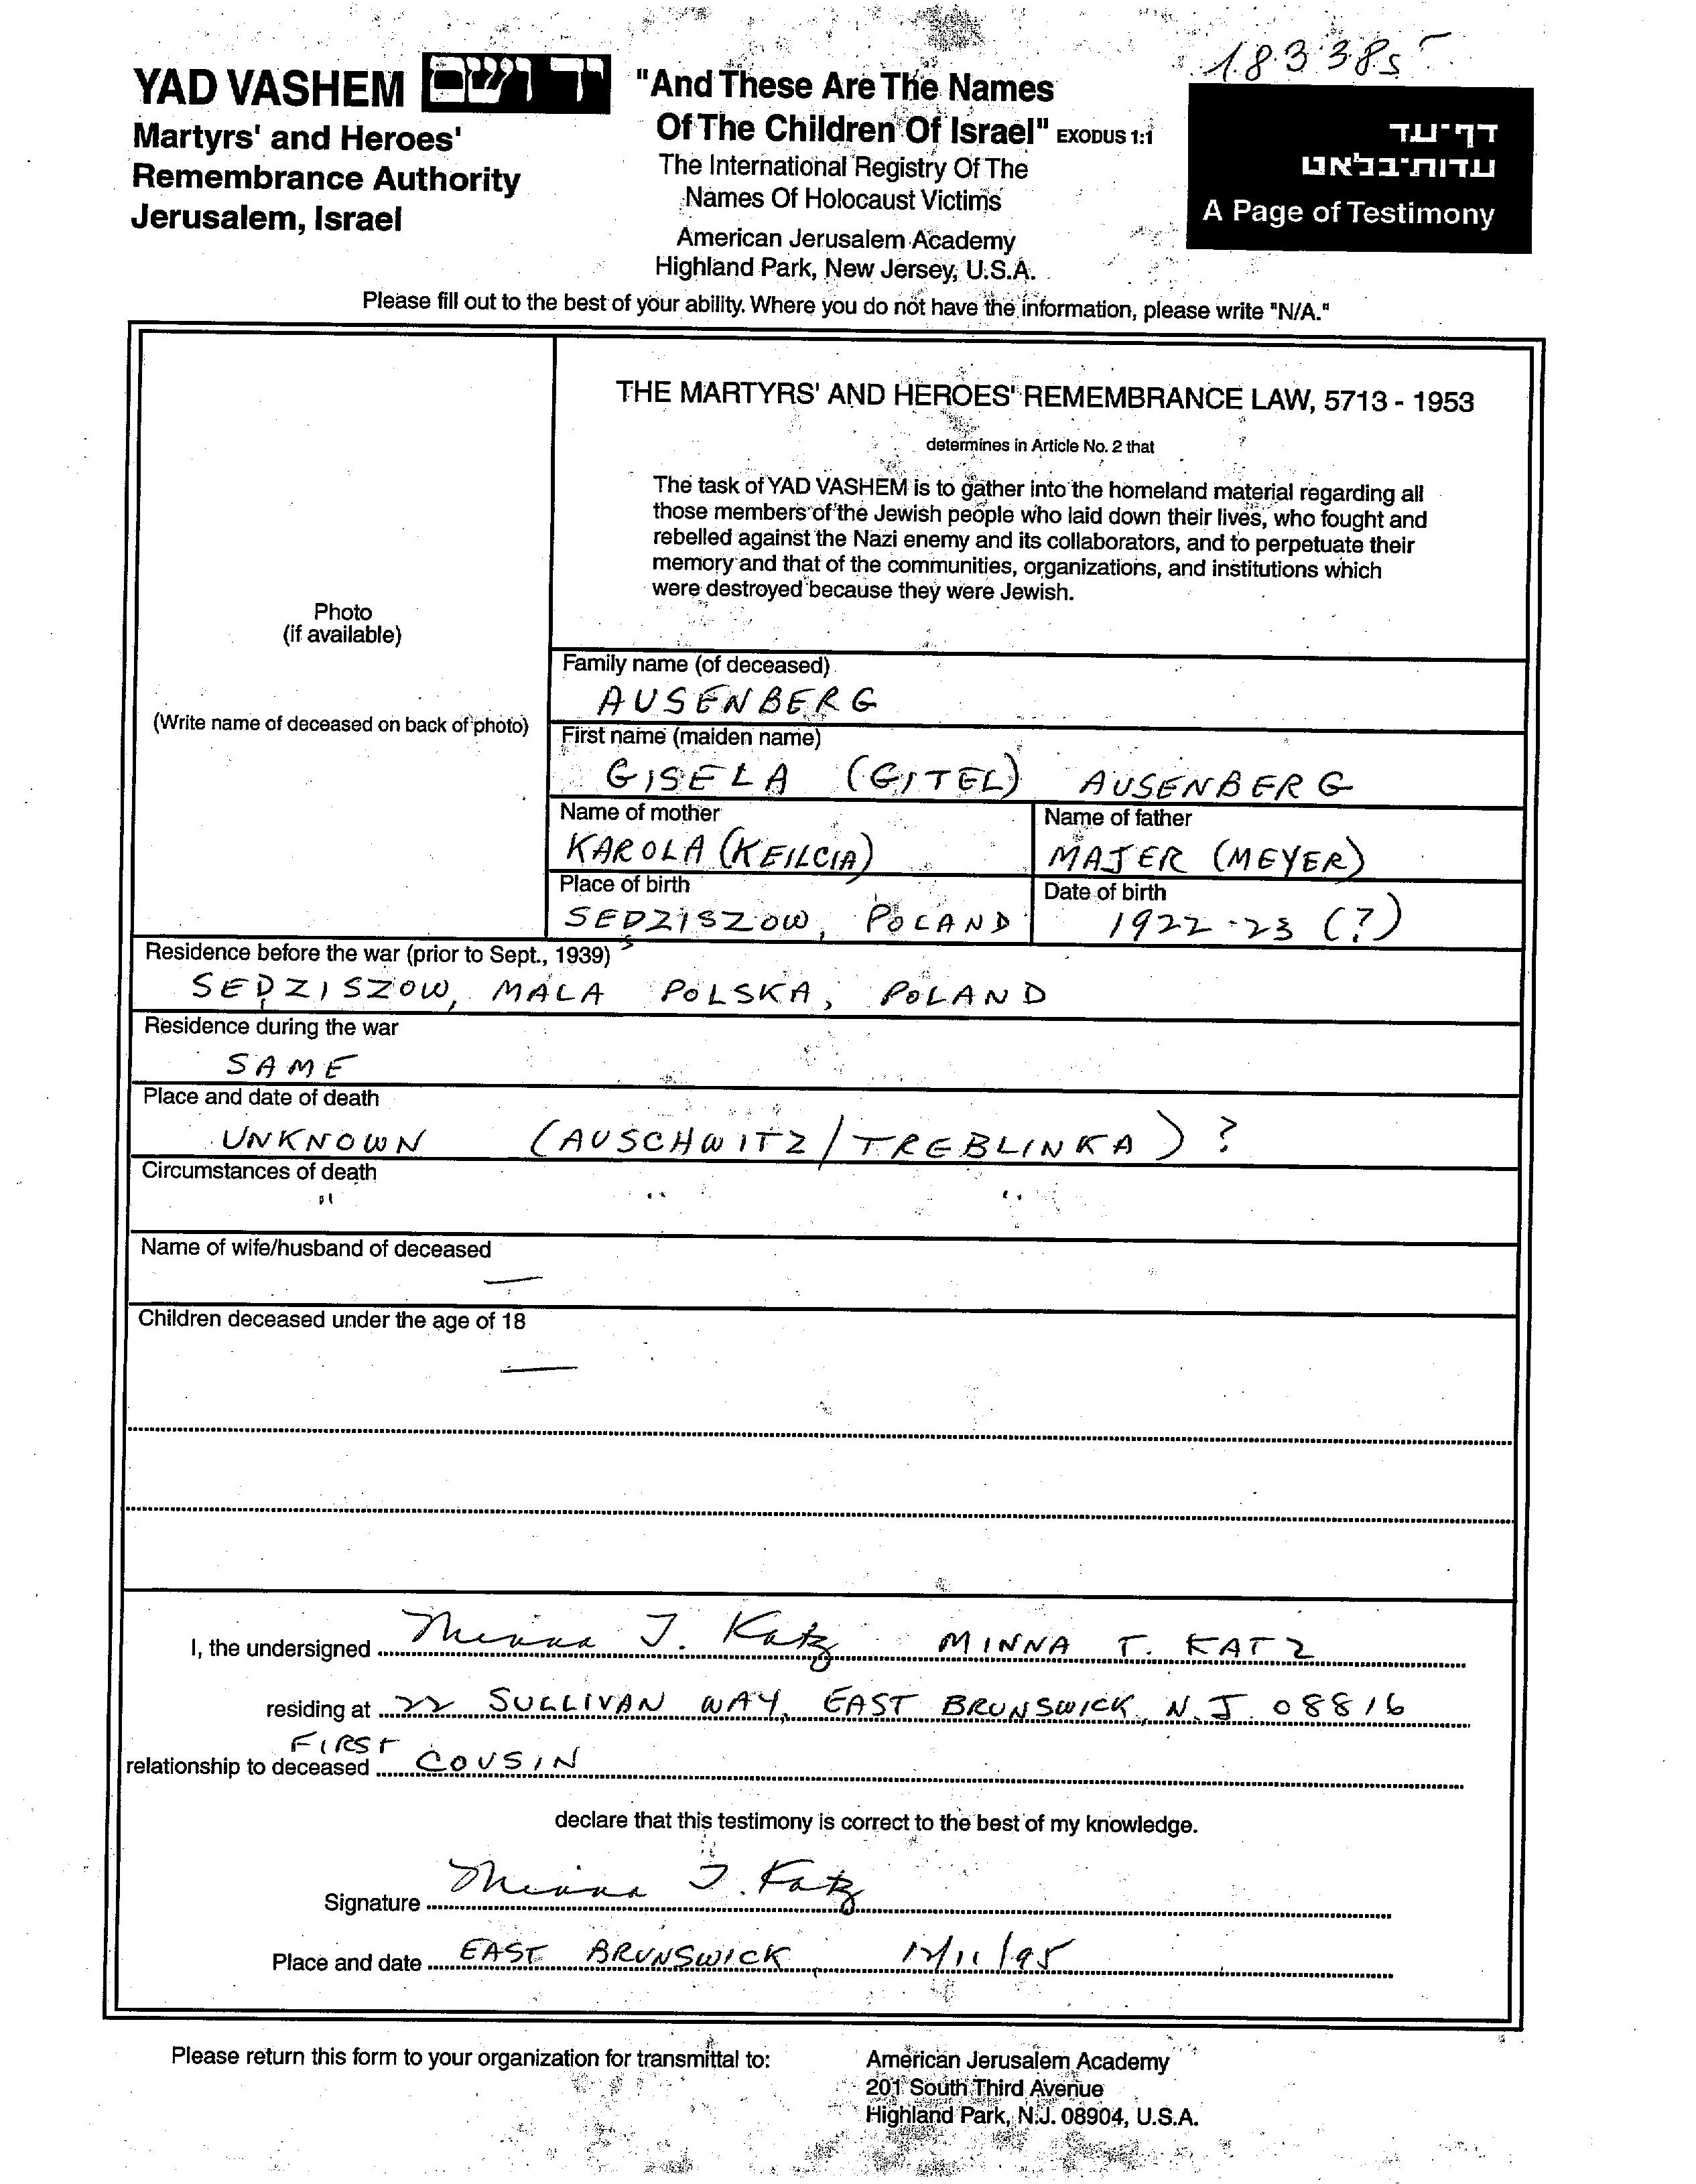 183385
YAD VASHEM יד ושם
Martyrs' and Heroes'
Remembrance Authority
Jerusalem, Israel
"And These Are The Names
Of The Children Of Israel" EXODUS 1:1
The International Registry Of The
Names Of Holocaust Victims
American Jerusalem Academy
Highland Park, New Jersey, U.S.A.
דף-עד
עדות-בלאט
A Page of Testimony
Please fill out to the best of your ability. Where you do not have the information, please write "N/A."
Photo
(if available)
(Write name of deceased on back of photo)
THE MARTYRS' AND HEROES' REMEMBRANCE LAW, 5713 - 1953
determines in Article No. 2 that
The task of YAD VASHEM is to gather into the homeland material regarding all
those members of the Jewish people who laid down their lives, who fought and
rebelled against the Nazi enemy and its collaborators, and to perpetuate their
memory and that of the communities, organizations, and institutions which
were destroyed because they were Jewish.
Family name (of deceased)
AUSENBERG
First name (maiden name)
GISELA (GITEL) AUSENBERG
Name of mother
KAROLA (KEILCIA)
Name of father
MAJER (MEYER)
Place of birth
SEDZISZOW, POLAND
Date of birth
1922-23 (?)
Residence before the war (prior to Sept., 1939)
SEDZISZOW, MALA POLSKA, POLAND
Residence during the war
SAME
Place and date of death
UNKNOWN (AUSCHWITZ/TREBLINKA) ?
Circumstances of death
" " "
Name of wife/husband of deceased
—
Children deceased under the age of 18
—
I, the undersigned Minna T. Katz MINNA T. KATZ
residing at 22 SULLIVAN WAY, EAST BRUNSWICK, N.J. 08816
relationship to deceased FIRST COUSIN
declare that this testimony is correct to the best of my knowledge.
Signature Minna T. Katz
Place and date EAST BRUNSWICK, 12/11/95
Please return this form to your organization for transmittal to:
American Jerusalem Academy
201 South Third Avenue
Highland Park, N.J. 08904, U.S.A.